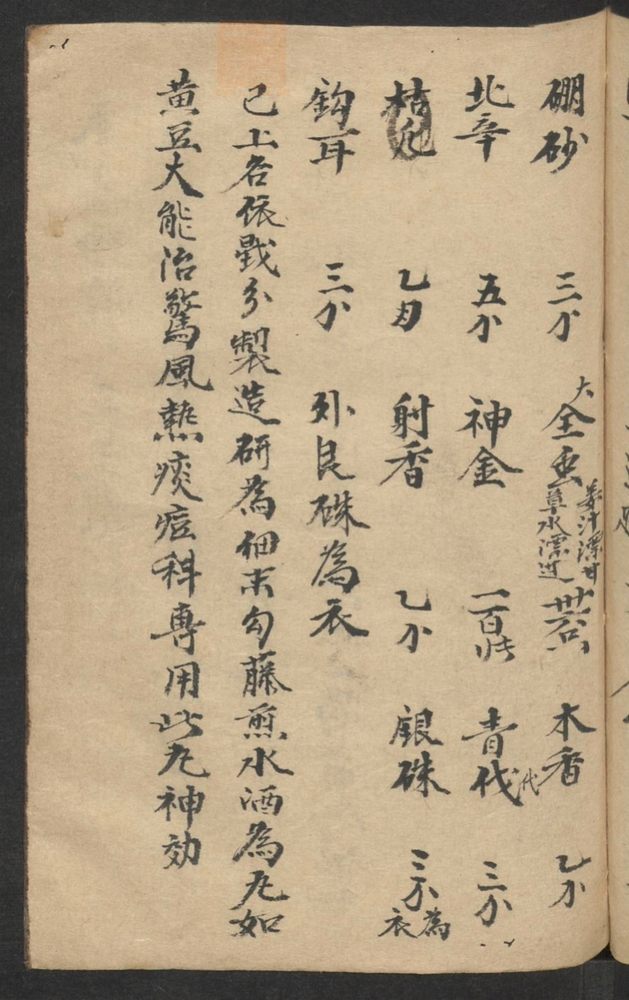 硼砂 三分 大全虫 姜汁漂甘草水漂过 廿八 木香 乙分
北辛 五分 神金 一百 青代 代 三分
桔 乙 射香 乙分 銀硃 三分 為衣
鈎耳 三分 外艮硃為衣
已上各依戥分製造研為細末勾藤煎水洒為丸如
黄豆大能治驚風熱痰痘科專用此丸神効